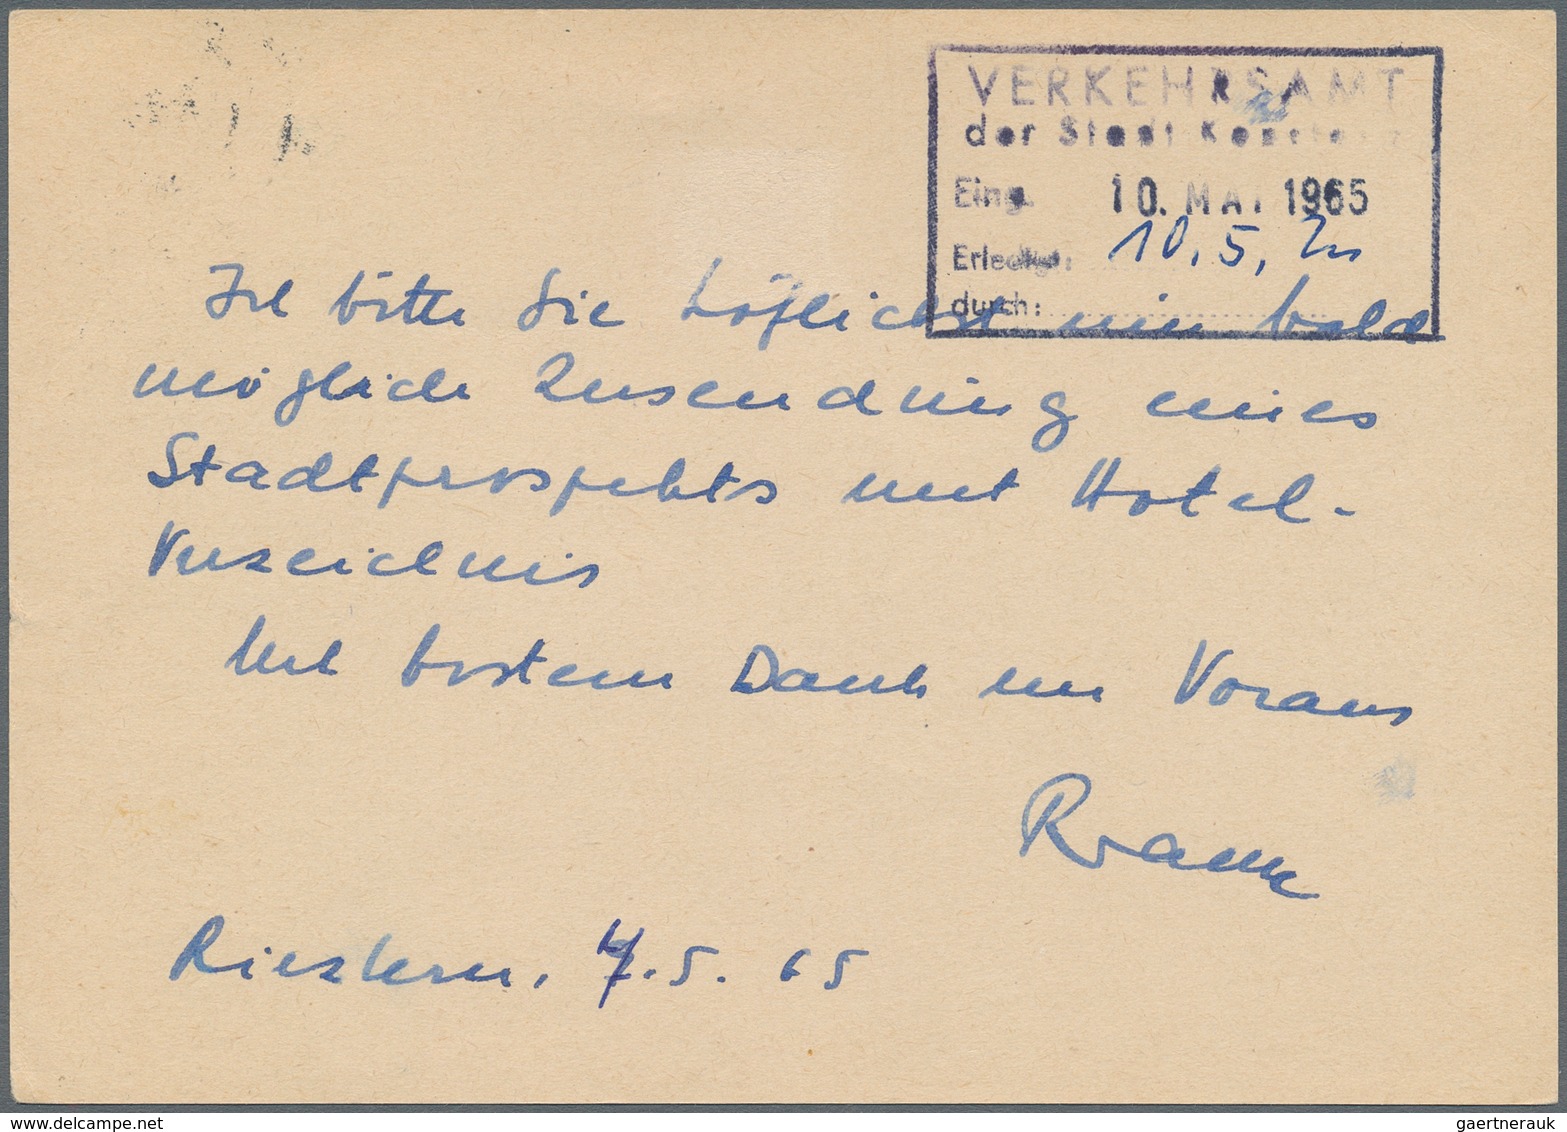 VERKEHRSAMT
der Stadt Konstanz
Eing. 10. MAI 1965
Erledigt: 10.5.
durch:
Ich bitte Sie höflichst um bald
mögliche Zusendung eines
Stadtprospekts mit Hotel-
Verzeichnis
Mit bestem Dank im Voraus
5.65
www.delcampe.net
gaertnerauk